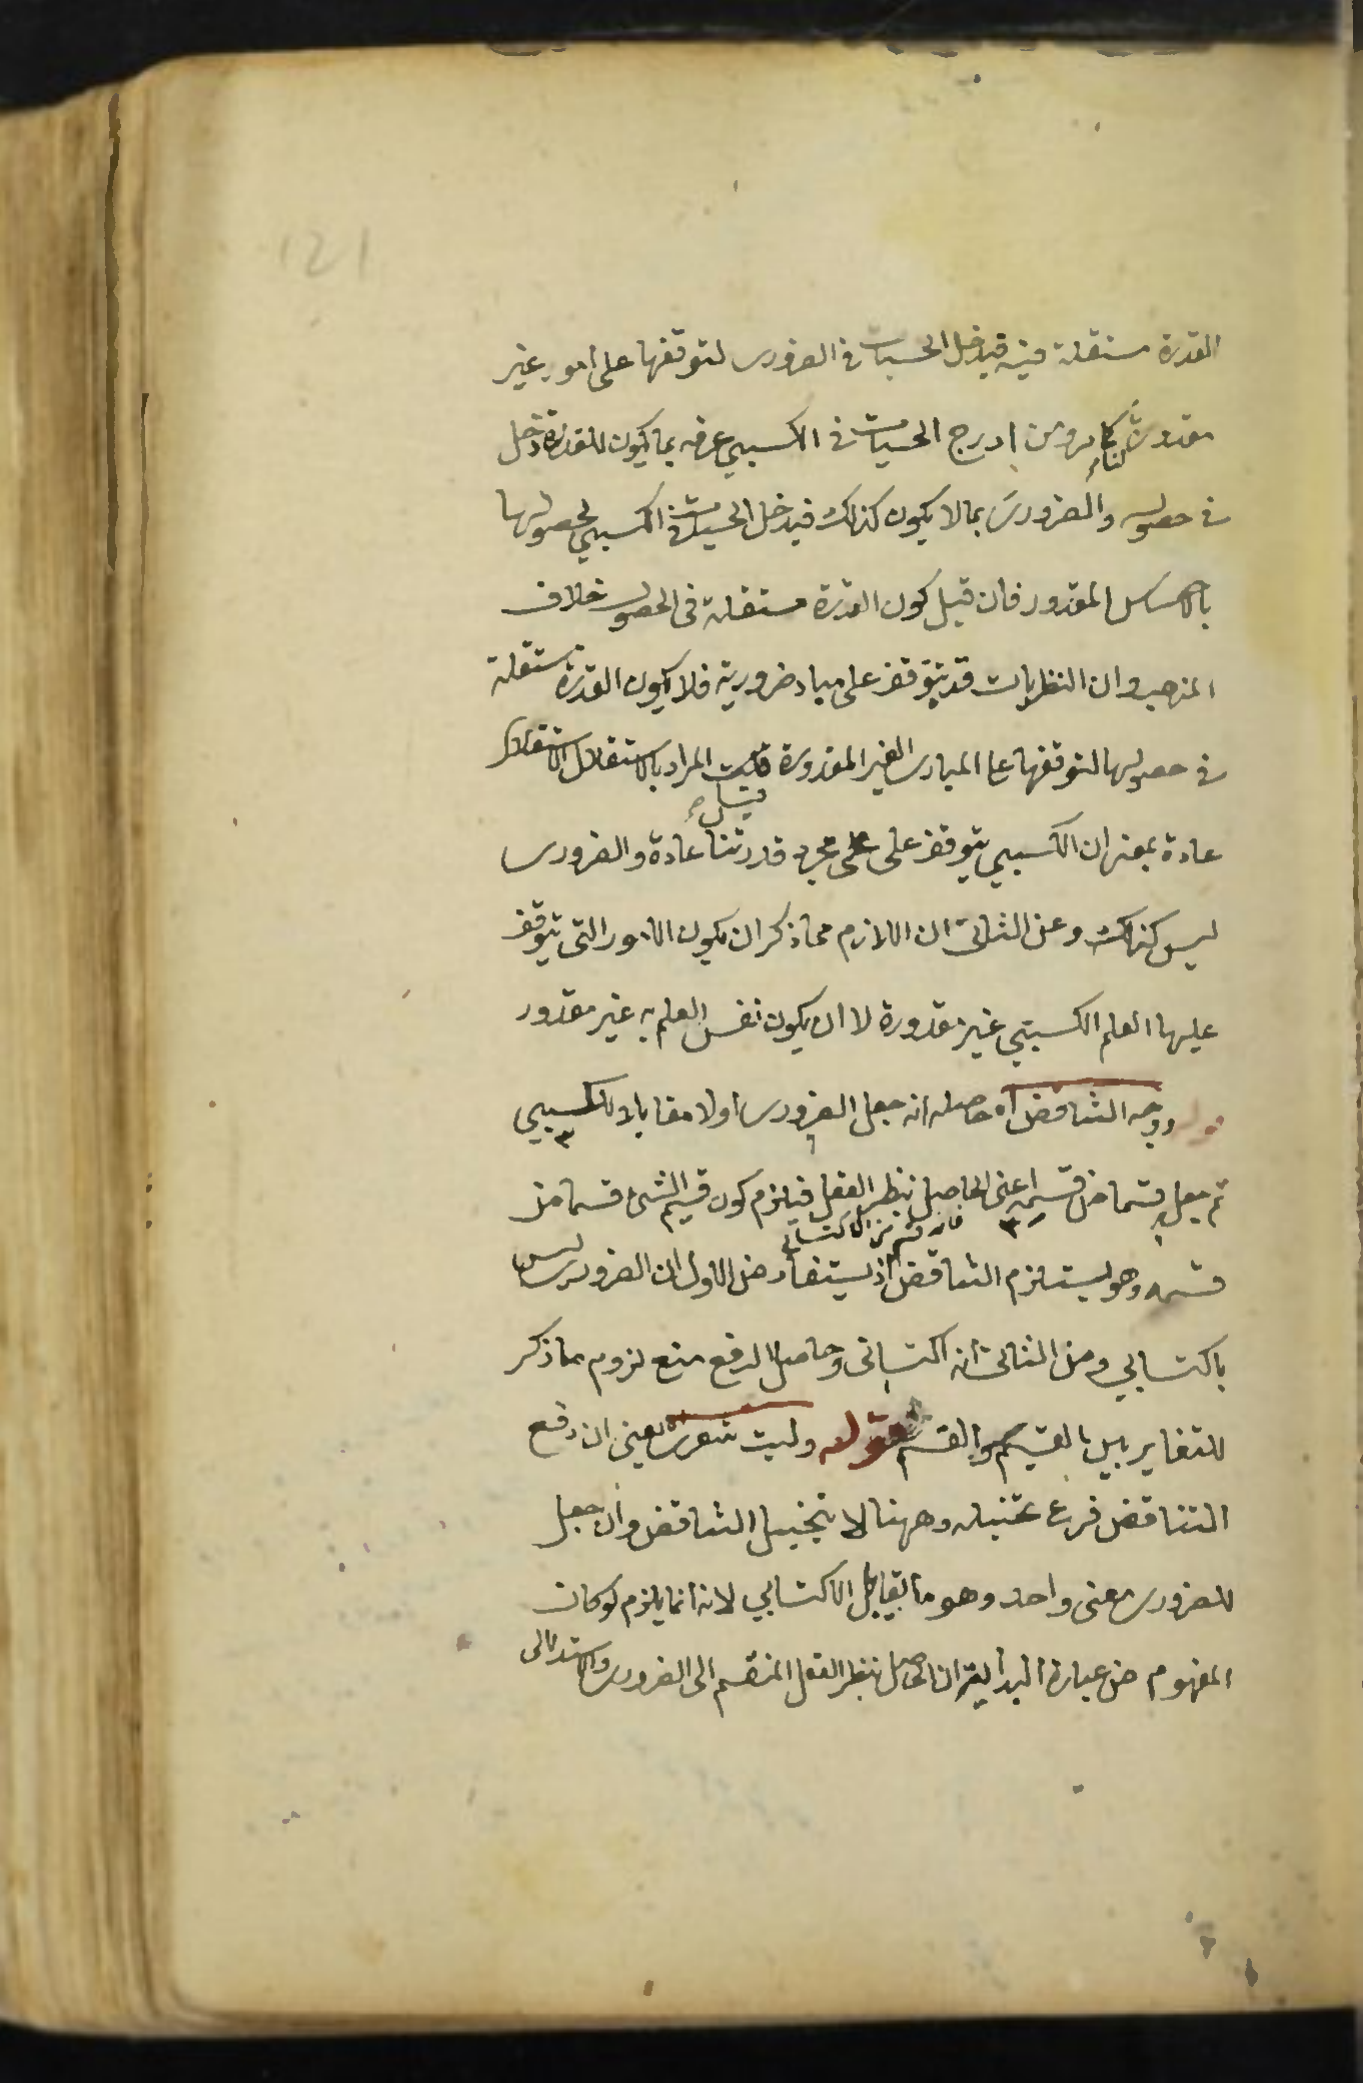 121
القدرة مستقلة فيه فيدخل الحسيات في الضروري لتوقفها على امور غير
مقدورة لنا كما مر ومن ادرج الحسيات في الكسبي عرفه بما يكون للقدرة دخل
في حصوله والضروري بما لا يكون كذلك فيدخل الحسيات في الكسبي لحصولها
بالاحساس المقدور فان قيل كون القدرة مستقلة في الحصول خلاف
المذهب وان النظريات قد يتوقف على مباد ضرورية فلا يكون القدرة مستقلة
في حصولها لتوقفها على المبادي الغير المقدورة قلت المراد بالاستقلال الاستقلال
عادة بمعنى ان الكسبي يتوقف على على مجرد قدرتنا عادة والضروري
ليس كذلك وعن الثاني ان اللازم مما ذكر ان يكون الامور التي يتوقف
عليها العلم الكسبي غير مقدورة لا ان يكون نفس العلم به غير مقدور
قوله ووجه التناقض اه حاصله انه جعل الضروري اولا مقابلا للكسبي
ثم جعل قسما من قسيمه اعني الحاصل بنظر العقل فيلزم كون قسيم الشئ قسما من
قسمه وهو يستلزم التناقض اذ يستفاد من الاول ان الضروري ليس
باكتسابي ومن الثاني انه اكتسابي وحاصل الدفع منع لزوم ما ذكر
للتغاير بين القسيم والقسم قوله وليت شعري يعني ان دفع
التناقض فرع تخيله وههنا لا يتخيل التناقض وان جعل
للضروري معنى واحد وهو ما يقابل الاكتسابي لانه انما يلزم لو كان
المفهوم من عبارة البداية ان الحاصل بنظر العقل المنقسم الى الضروري والاستدلالي